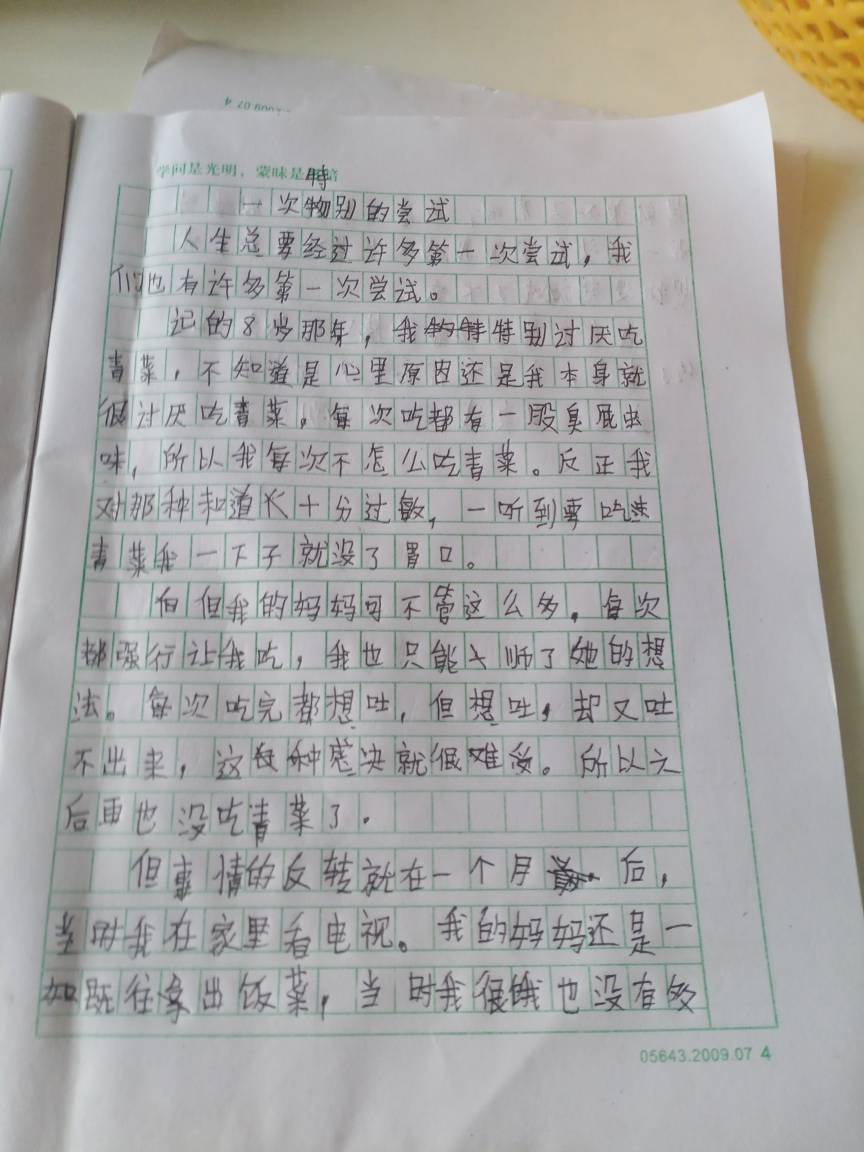 学问是光明，蒙昧是黑暗
特
一次物别的尝试
人生总要经过许多第一次尝试，我
们也有许多第一次尝试。
记的8岁那年，我特别讨厌吃
青菜，不知道是心里原因还是我本身就
很讨厌吃青菜，每次吃都有一股臭屁虫
味，所以我每次不怎么吃青菜。反正我
对那种和道长十分过敏，一听到要吃
青菜我一下子就没了胃口。
但我的妈妈可不管这么多，每次
都强行让我吃，我也只能师了她的想
法。每次吃完都想吐，但想吐，却又吐
不出来，这种感决就很难受。所以
后再也没吃青菜了.
但事情的反转就在一个月后，
当时我在家里看电视。我的妈妈还是一
如既往拿出饭菜，当时我很饿也没有多
05643.2009.07 4